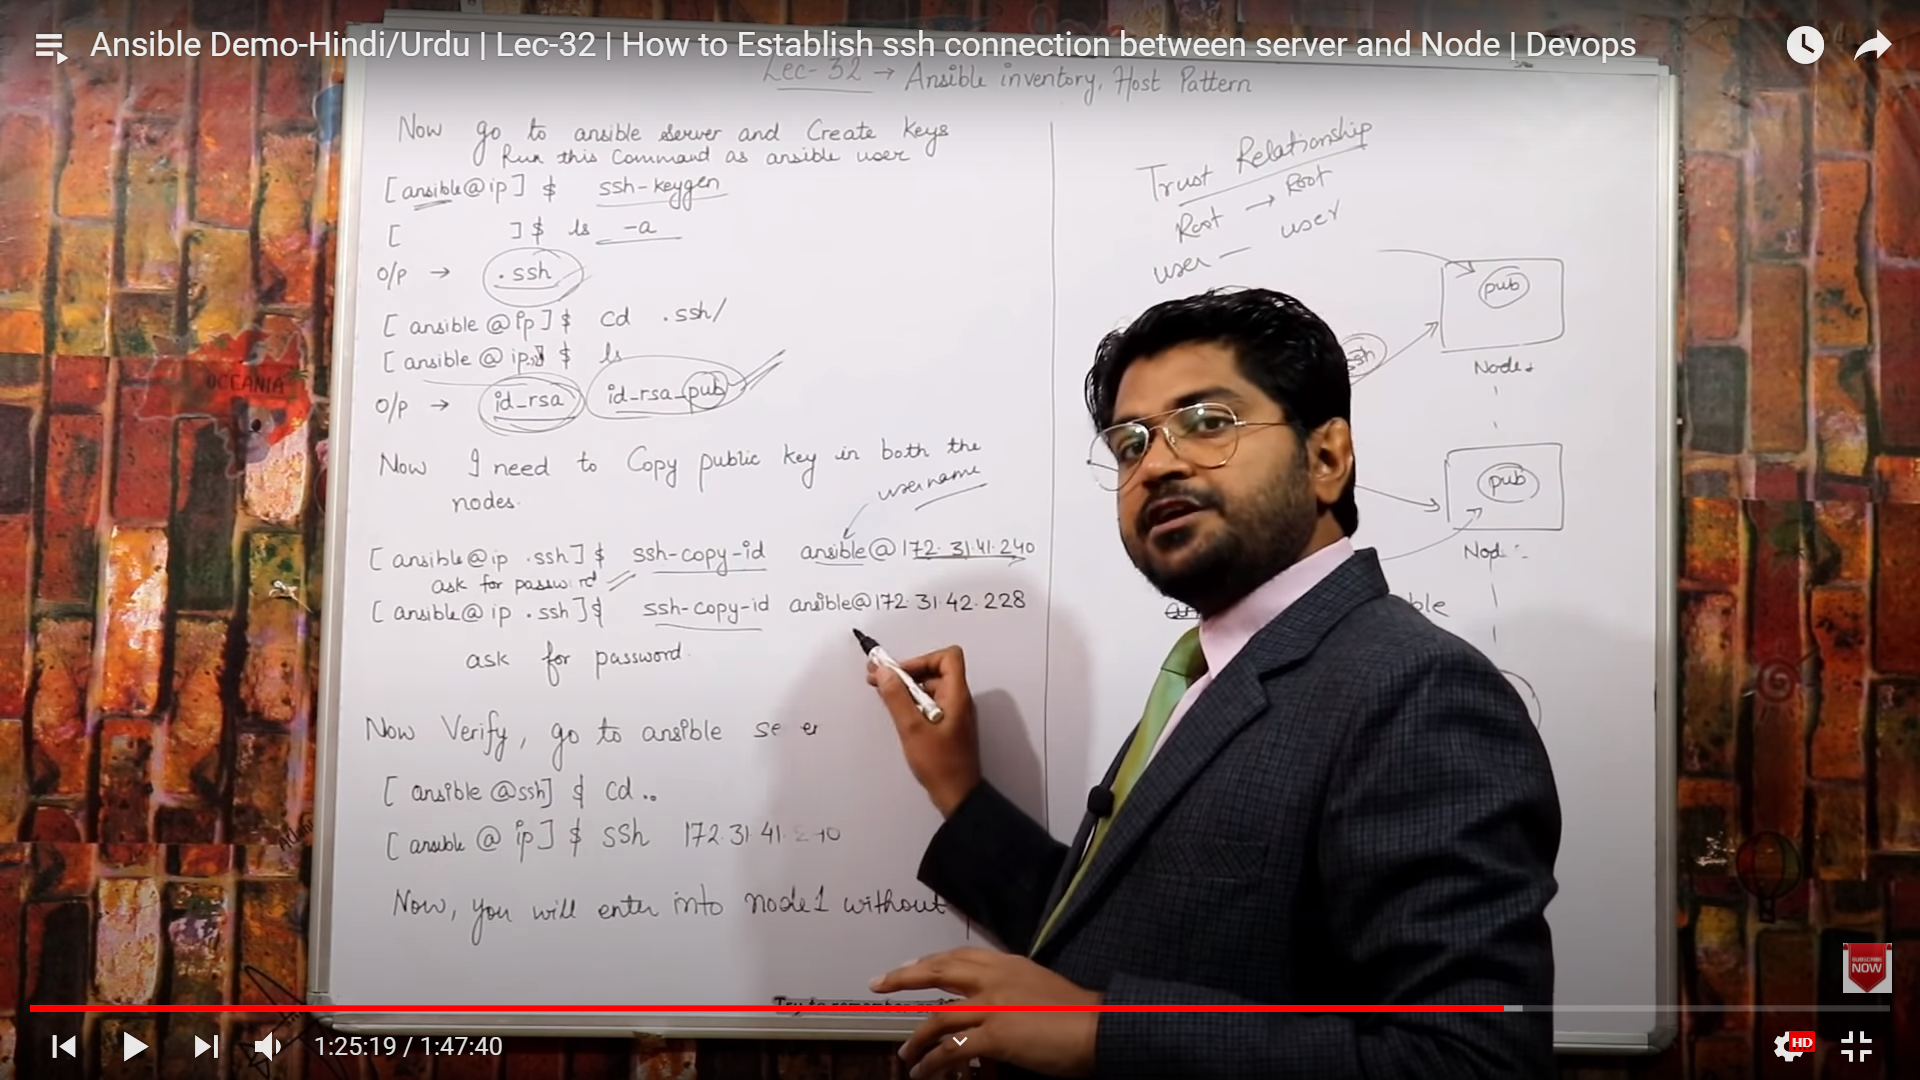 Ansible Demo-Hindi/Urdu | Lec-32 | How to Establish ssh connection between server and Node | Devops
Lec-32 → Ansible inventory, Host Pattern
Now go to ansible server and Create keys
Run this Command as ansible user
[ansible@ip] $ ssh-keygen
[ ]$ ls -a
O/P → .ssh
[ansible@ip]$ cd .ssh/
[ansible@ip] $ ls
O/P → id_rsa id-rsa_pub
Now I need to Copy public key in both the
nodes.
username
[ansible@ip .ssh]$ ssh-copy-id ansible@172.31.41.240
ask for password
[ansible@ip .ssh]$ ssh-copy-id ansible@172.31.42.228
ask for password.
Now Verify, go to ansible se er
[ansible@ssh] $ cd ..
[ansible@ip] $ ssh 172.31.41.240
Now, you will enter into node1 without
Trust Relationship
Root → Root
user — user
pub
ssh
Node
pub
Nod
OCEANIA
SUBSCRIBE
NOW
1:25:19 / 1:47:40
HD